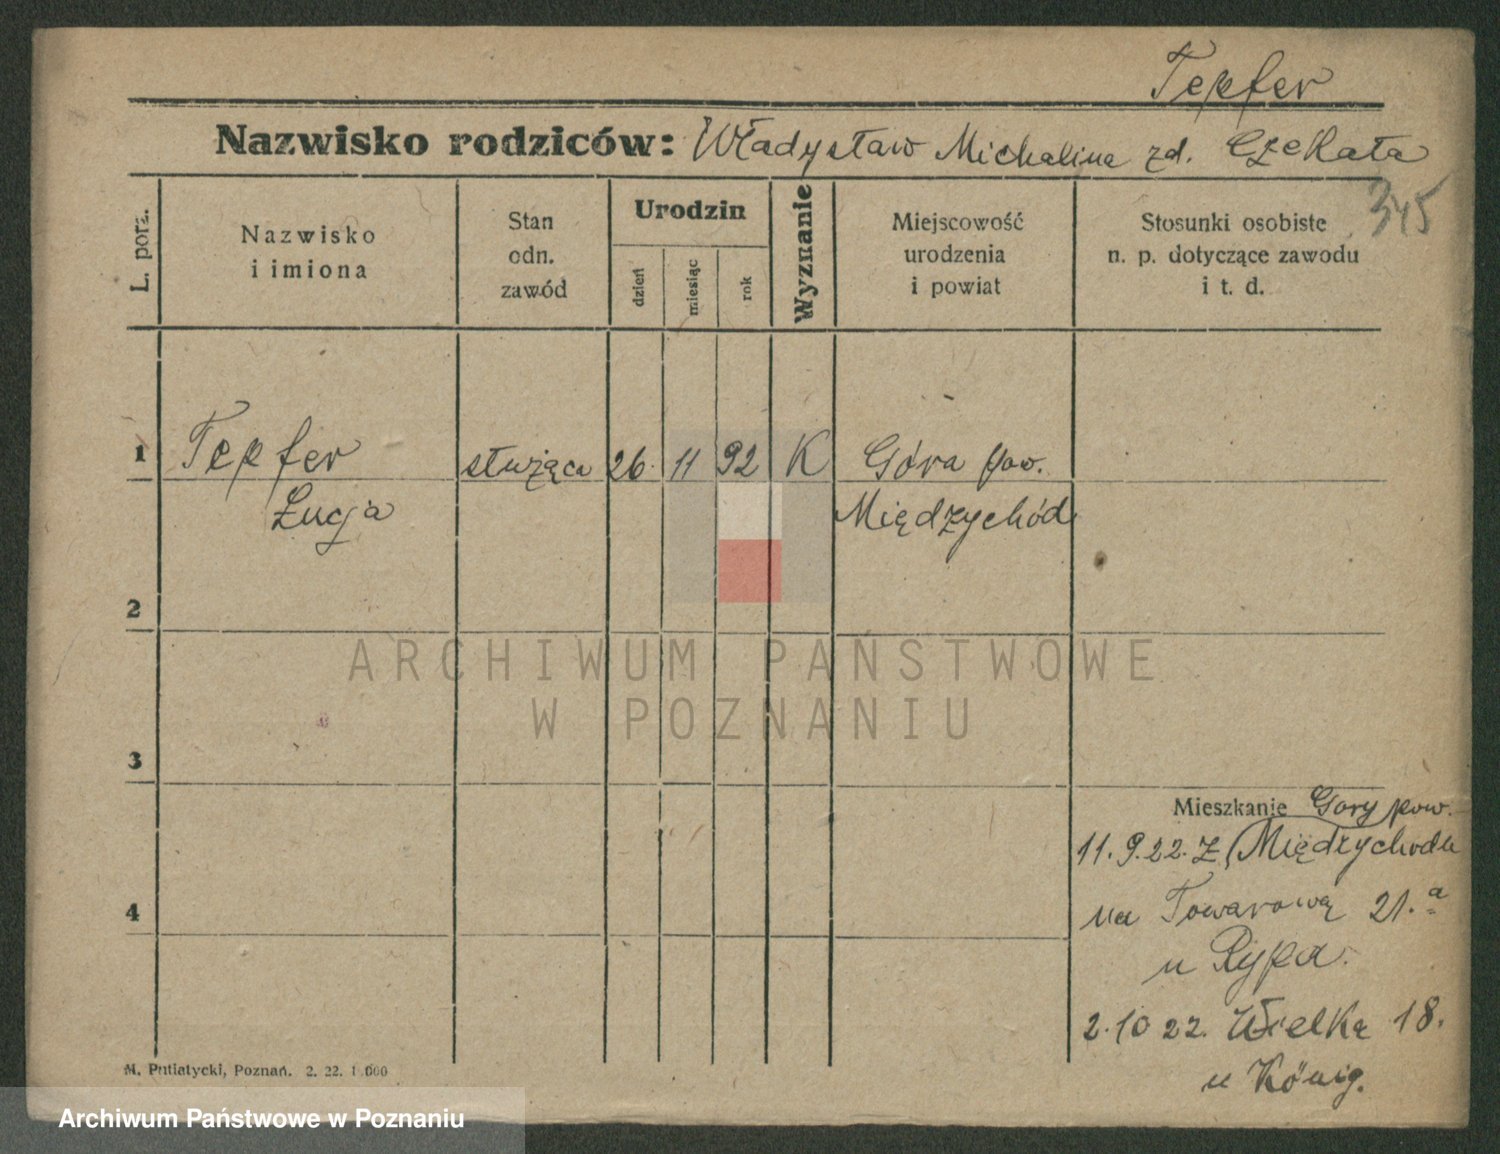 Tepfer
Nazwisko rodziców: Władysław Michalina zd. Czekała
345
L. porz.
Nazwisko
i imiona
Stan
odn.
zawód
Urodzin
dzień
miesiąc
rok
Wyznanie
Miejscowość
urodzenia
i powiat
Stosunki osobiste
n. p. dotyczące zawodu
i t. d.
1
Tepfer
służąca
26.
11
92
K
Góra pow.
Łucja
Międzychód
2
ARCHIWUM PAŃSTWOWE
W POZNANIU
3
Mieszkanie Gory pow.
11.9.22. z Międzychodu
4
na Towarową 21.a
u Rypa.
2.10 22. Wielka 18.
u König.
M. Putiatycki, Poznań. 2. 22. 1.000
Archiwum Państwowe w Poznaniu